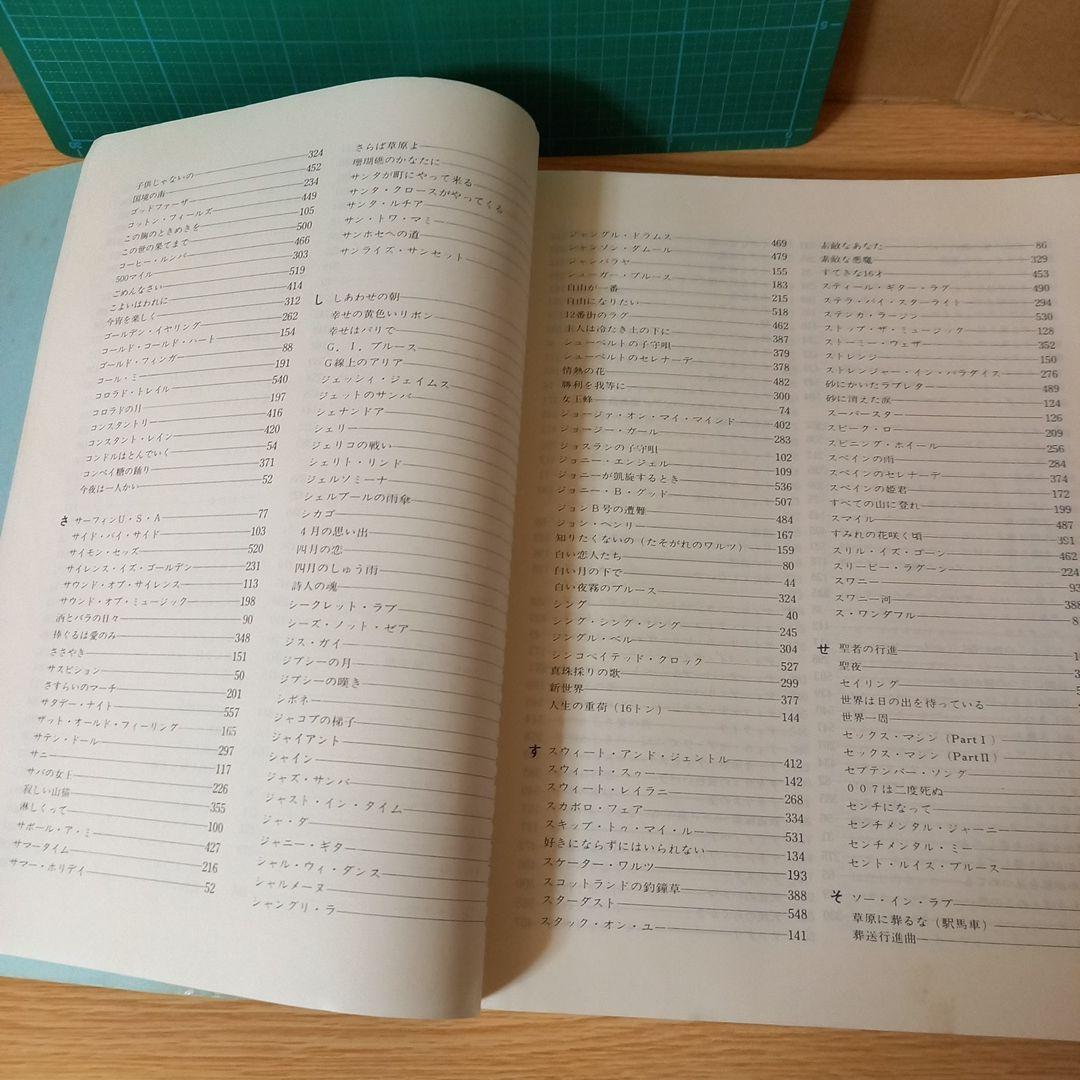 子供じゃないの 324
国境の南 452
ゴッドファーザ 234
コットン・フィールズ 449
この胸のときめきを 105
この世の果てまで 500
コーヒー・ルンバ 466
500マイル 303
ごめんなさい 519
こよいはわれに 414
今宵を楽しく 312
ゴールデン・イヤリング 262
コールド・コールド・ハート 154
ゴールド・フィンガー 88
コール・ミー 191
コロラド・トレイル 540
コロラドの月 197
コンスタントリー 416
コンスタント・レイン 420
コンドルはとんでいく 54
コンペイ糖の踊り 371
今夜は一人かい 52
さ サーフィンU・S・A 77
サイド・バイ・サイド 103
サイモン・セッズ 520
サイレンス・イズ・ゴールデン 231
サウンド・オブ・サイレンス 113
サウンド・オブ・ミュージック 198
酒とバラの日々 90
捧ぐるは愛のみ 348
ささやき 151
サスピション 50
さすらいのマーチ 201
サタデー・ナイト 557
ザット・オールド・フィーリング 165
サテン・ドール 297
サニー 117
サバの女王 226
寂しい山猫 355
淋しくって 100
サボール・ア・ミー 427
サマータイム 216
サマー・ホリデイ 52
さらば草原よ
珊瑚礁のかなたに
サンタが町にやって来る
サンタ・クロースがやってくる
サンタ・ルチア
サン・トワ・マミー
サンホセへの道
サンライズ・サンセット
し しあわせの朝
幸せの黄色いリボン
幸せはパリで
G．I．ブルース
G線上のアリア
ジェッシィ・ジェイムス
ジェットのサンバ
シェナンドア
シェリー
ジェリコの戦い
シェリト・リンド
ジェルソミーナ
シェルブールの雨傘
シカゴ
4月の思い出
四月の恋
四月のしゅう雨
詩人の魂
シークレット・ラブ
シーズ・ノット・ゼア
ジス・ガイ
ジプシーの月
ジプシーの嘆き
シボネ
ジャコブの梯子
ジャイアント
シャイン
ジャズ・サンバ
ジャスト・イン・タイム
ジャ・ダ
ジャニー・ギター
シャル・ウィ・ダンス
シャルメーヌ
シャングリ・ラ
ジャングル・ドラムス 469
シャンソン・ダムール 479
ジャンバラヤ 155
シューガー・ブルース 183
自由が一番 215
自由になりたい 518
12番街のラグ 462
主人は冷たき土の下に 387
シューベルトの子守唄 379
シューベルトのセレナーデ 378
情熱の花 482
勝利を我等に 300
女王蜂 74
ジョージァ・オン・マイ・マインド 402
ジョージー・ガール 283
ジョスランの子守唄 102
ジョニー・エンジェル 109
ジョニーが凱旋するとき 536
ジョニー・B・グッド 507
ジョンB号の遭難 484
ジョン・ヘンリ 167
知りたくないの（たそがれのワルツ） 159
白い恋人たち 80
白い月の下で 44
白い夜霧のブルース 324
シング 40
シング・シング・シング 245
ジングル・ベル 304
シンコペイテッド・クロック 527
真珠採りの歌 299
新世界 377
人生の重荷（16トン） 144
す スウィート・アンド・ジェントル 412
スウィート・スゥー 142
スウィート・レイラニ 268
スカボロ・フェア 334
スキップ・トゥ・マイ・ルー 531
好きにならずにはいられない 134
スケーター・ワルツ 193
スコットランドの釣鐘草 388
スターダスト 548
スタック・オン・ユー 141
素敵なあなた 86
素敵な悪魔 329
すてきな16才 453
スティール・ギター・ラグ 490
ステラ・バイ・スターライト 294
ステンカ・ラージン 530
ストップ・ザ・ミュージック 128
ストーミー・ウェザ 352
ストレンジ 150
ストレンジャー・イン・パラダイス 276
砂にかいたラブレター 489
砂に消えた涙 124
スーパースター 126
スピーク・ロー 209
スピニング・ホイール 256
スペインの雨 284
スペインのセレナーデ 374
スペインの姫君 172
すべての山に登れ 199
スマイル 357
すみれの花咲く頃 391
スリル・イズ・ゴーン 462
スリーピー・ラグーン 224
スワニー 93
スワニー河 388
ス・ワンダフル 8
せ 聖者の行進 1
聖夜 3
セイリング 5
世界は日の出を待っている
世界一周
セックス・マシン（PartⅠ）
セックス・マシン（PartⅡ）
セプテンバー・ソング
007は二度死ぬ
センチになって
センチメンタル・ジャーニー
センチメンタル・ミー
セント・ルイス・ブルース
そ ソー・イン・ラブ
草原に葬るな（駅馬車）
葬送行進曲